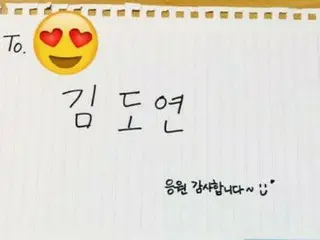 To.
김 도 연
응원 감사합니다~